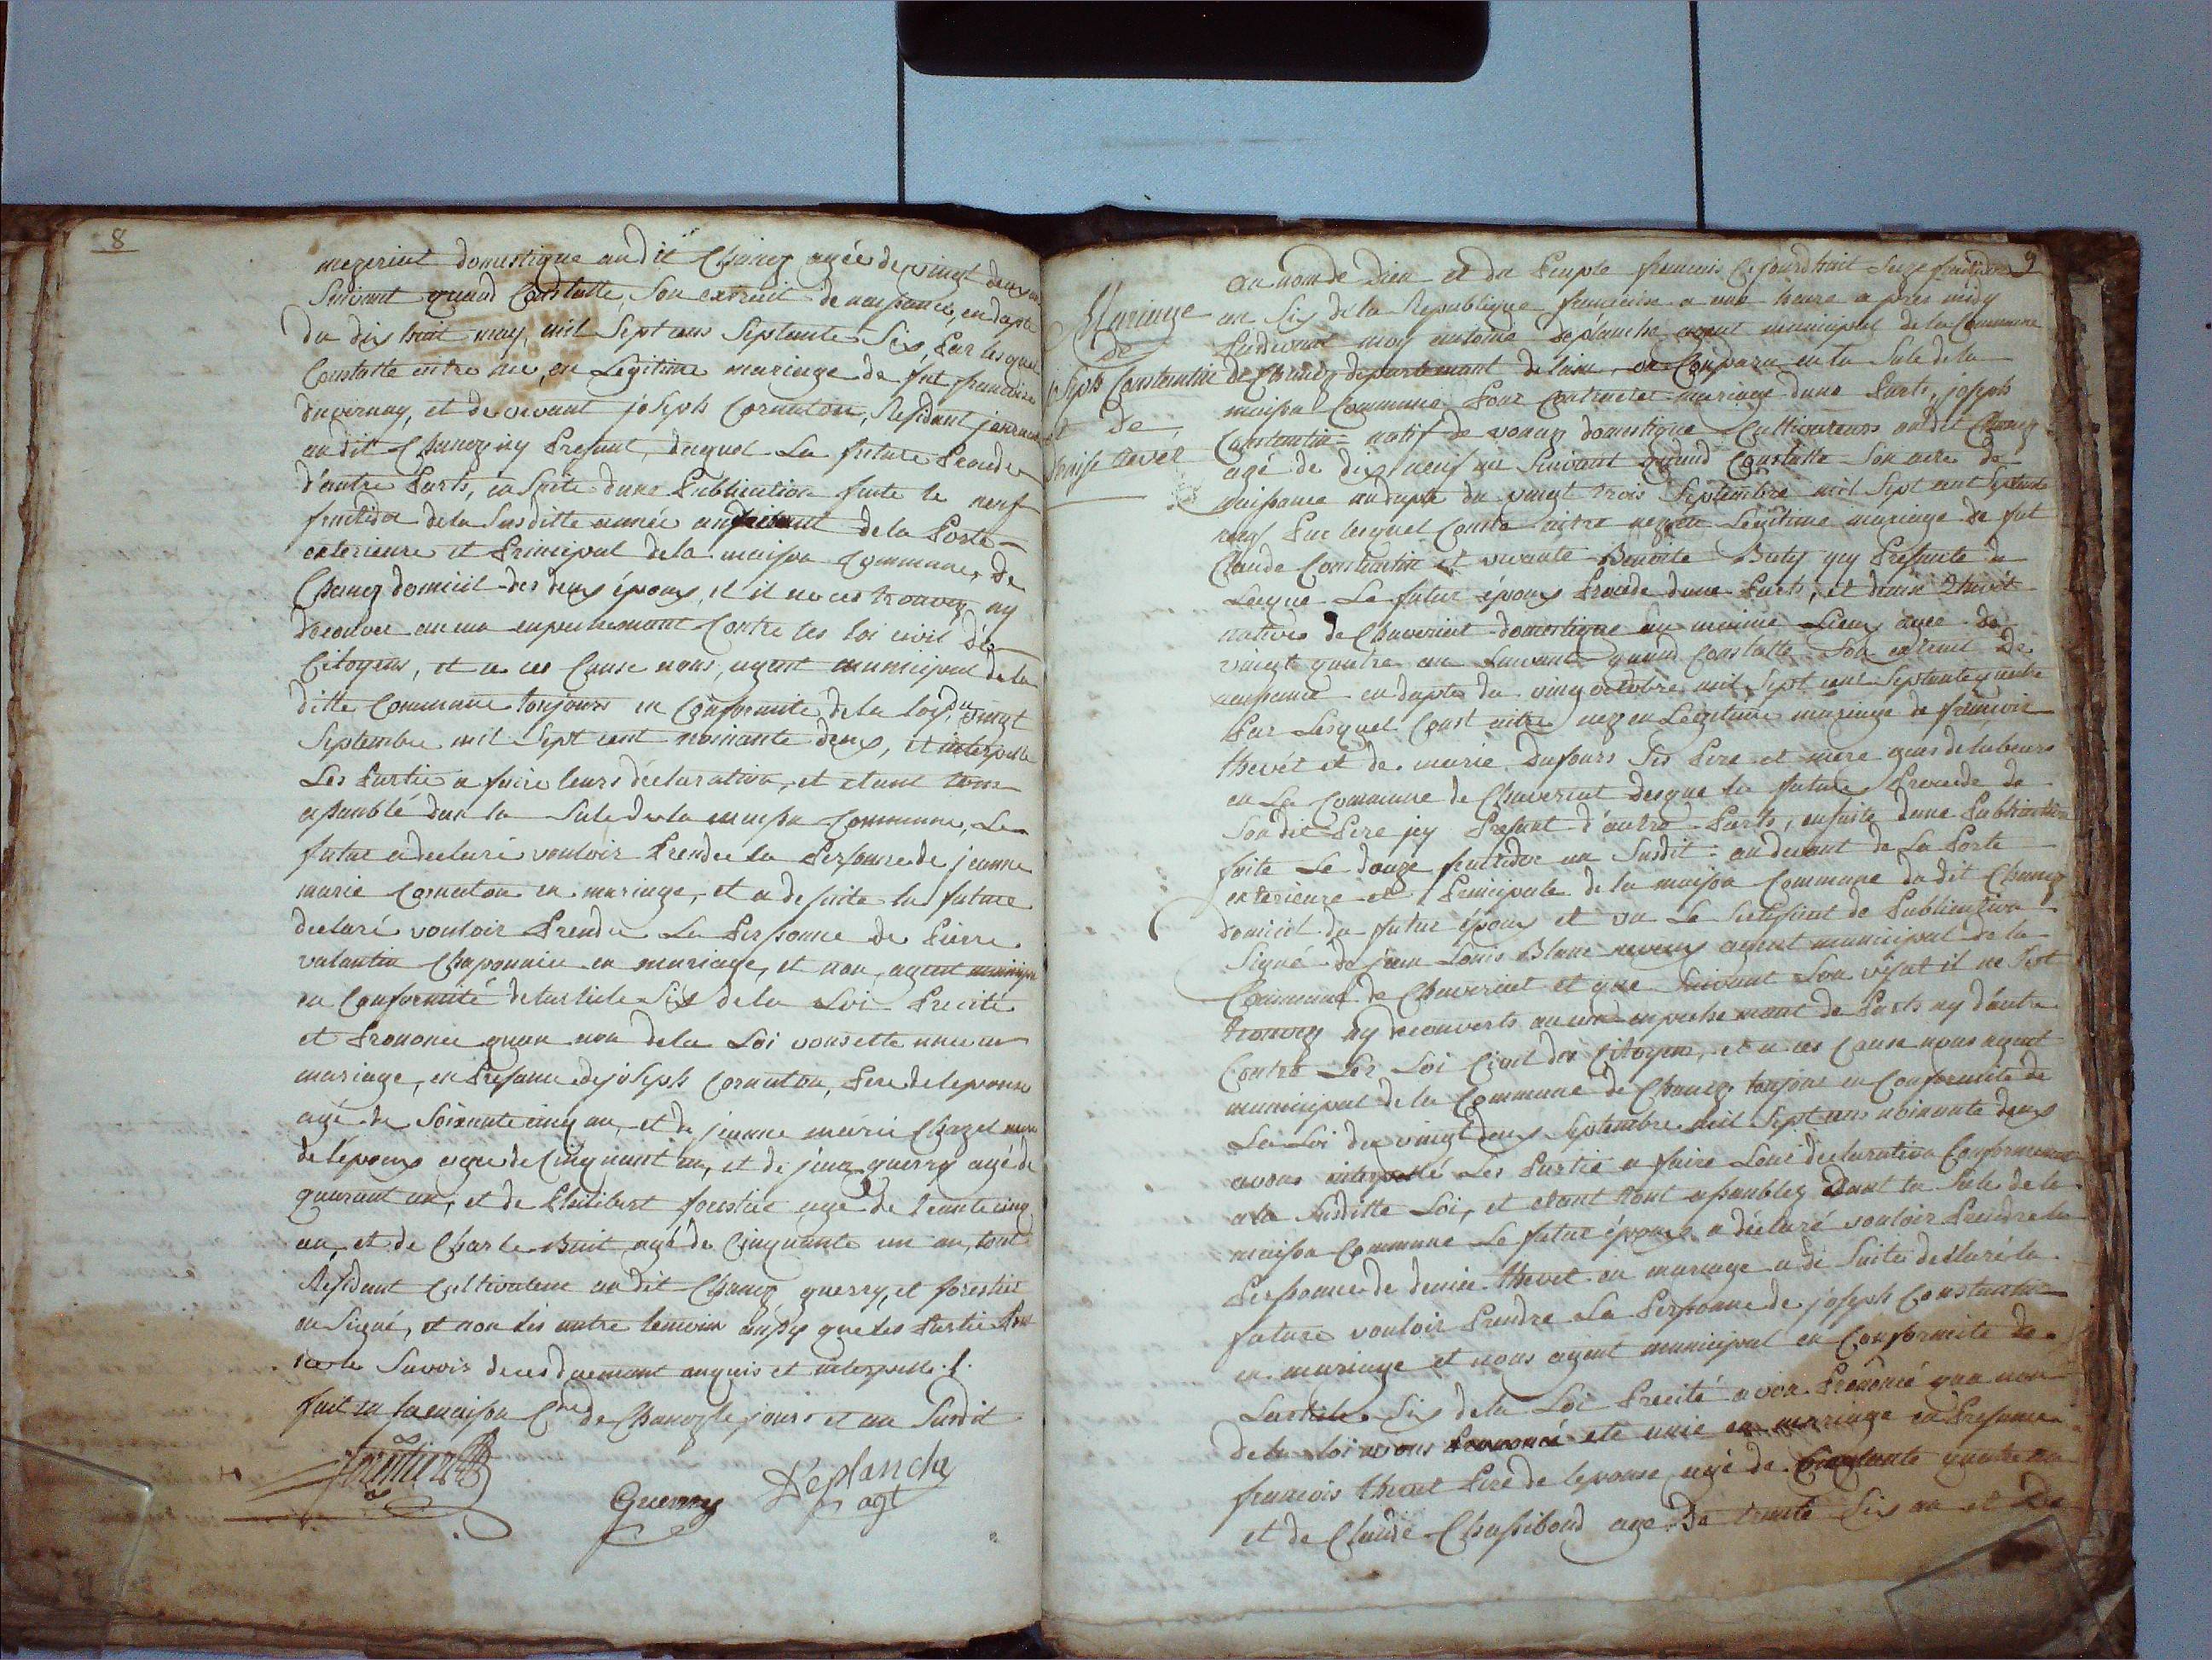 8
mezeriat domestique audit Chanoz agée de vingt deux an
Suivant quand Constatte, Son extrait de naissance, en dapte
du dix huit may, mil Sept cens Septante Six, Par lesquel
Constatte aitre née, en Legitime mariage de fut francoise
duvernay, et de vivant joseph Cornaton, Residant
audit Chanoz icy Presant, duquel La future Procede
d'autre Parts, en suite dune Publication faite le neuf
fructidor de la Susditte année audevant de la Porte
exterieure et Principal de la maison Commune, de
Chanoz domicil des deux époux, et il ne ces trouvez ny
decouver aucun enpechemant Contre les loi civil des
Citoyens, et a ces Cause nous, agent municipal de la
ditte Commune toujours en Conformite de la loi du vingt
Septembre mil Sept cent noinante deux, et interpelle
Les Partie a faire leurs declaration, et etant tous
assamblé dan la Sale de la maison Commune, Le
futur a declaré vouloir Prendre la Personne de jeanne
marie Cornaton en mariage, et a de suite la future
declaré vouloir Prendre La Personne de Pierre
valantin Chaponnier en mariage, et nou, agent municipal
en Conformité de larticle Six de la Loi Precité
et Prononcé quau non de la Loi vous ette unie en
mariage, en Presance de joseph Cornaton, Pere de lepouse
agé de Soixante cinq an, et de jeanne marie Chazel mere
de l'epoux agee de Cinquant an, et de jean guerry agé de
quarant an, et de Philibert forestier agé de trante cinq
an, et de Charle Buit agé de Cinquante un an, tout
Residant Cultivateur audit Chanoz guerry, et forestier
on Signé, et non les autre temoin ainsy que les Partie Pour
ne le Savoir de ces duemant enquis et interpelle ./.
fait en la maison C.ne de Chanoz le jours et an Susdit
forestier
Guerry
Deplanche
agt
9
Mariage
de
joseph Constantin
et de
Denise thevet
au nom de Dieu et du Peuple francais Cejourdhuit Seize fructidor
an Six de la Republique francaise a une heure apres midy
Pardevant moy antoine Deplanche agent municipal de la Commune
de Chanoz departement de lain, on Conparu en la Sale de la
maison Commune Pour Contracter mariage dune Parts, joseph
Constantin natif de vonnaz domestique Cultivateurs audit Chanoz
agé de dix neuf an Suivant quand Constatte Son acte de
naissance audapte du vingt trois Septembre mil Sept cent Septante
neuf Par lesquel Conste aitre nez en Légitime mariage de fut
Claude Constantin et vivante Benoite Buty icy Presante de
Laque Le futur époux Procede dune Parts, et denise thevét
native de Chaveriat domestique au maime Lieux agee de
vingt quatre an Suivant quand Constatte Son extrait de
naissance en dapte du vingt octobre mil Sept cent Septante quatre
Par Lesquel Const aitre nez en Legitime mariage de francois
thevét et de marie Dufours Ses Pere et mere gens de labeurs
en La Commune de Chaveriat desque la future Procede de
Son dit Pere icy Presant d'autre Parts, ensuite dune Publication
faite Le douze fructidor an Susdit: audevant de La Porte
exterieure et Principale de la maison Commune dudit Chanoz
domicil du futur époux et vu Le Sertifiicat de Publication
Signé de jean Louis Blanc agent municipal de la
Commune de Chaveriat et que Suivant Son visat il ne Sest
trouvez ny decouverts aucun enpechemant de Parts ny d'autre
Contre Les Loi Civil des Citoyens, et a ces Cause nous agent
municipal de la Commune de Chanoz toujour en Conformite de
La Loi du vingt deux Septembre mil Sept cens noinante deux
avons interpellé Les Partie a faire Leur declaration Conformement
a la Susditte Loi, et etant tout assamblez dant la Sale de la
maison Commune Le futur époux a déclaré vouloir Prendre la
Personne de denise thevet en mariage a de Suite declaré la
future vouloir Prendre La Personne de joseph Constantin
en mariage et nous agent municipal en Conformite de
Larticle Six de la Loi Precité avon Prononcé quau non
de la loi vous ete unie en mariage en Presance
francois thevet Pere de lepouse agé de Cinquante quatre an
et de Claude Chassibond age de trante Six an et De